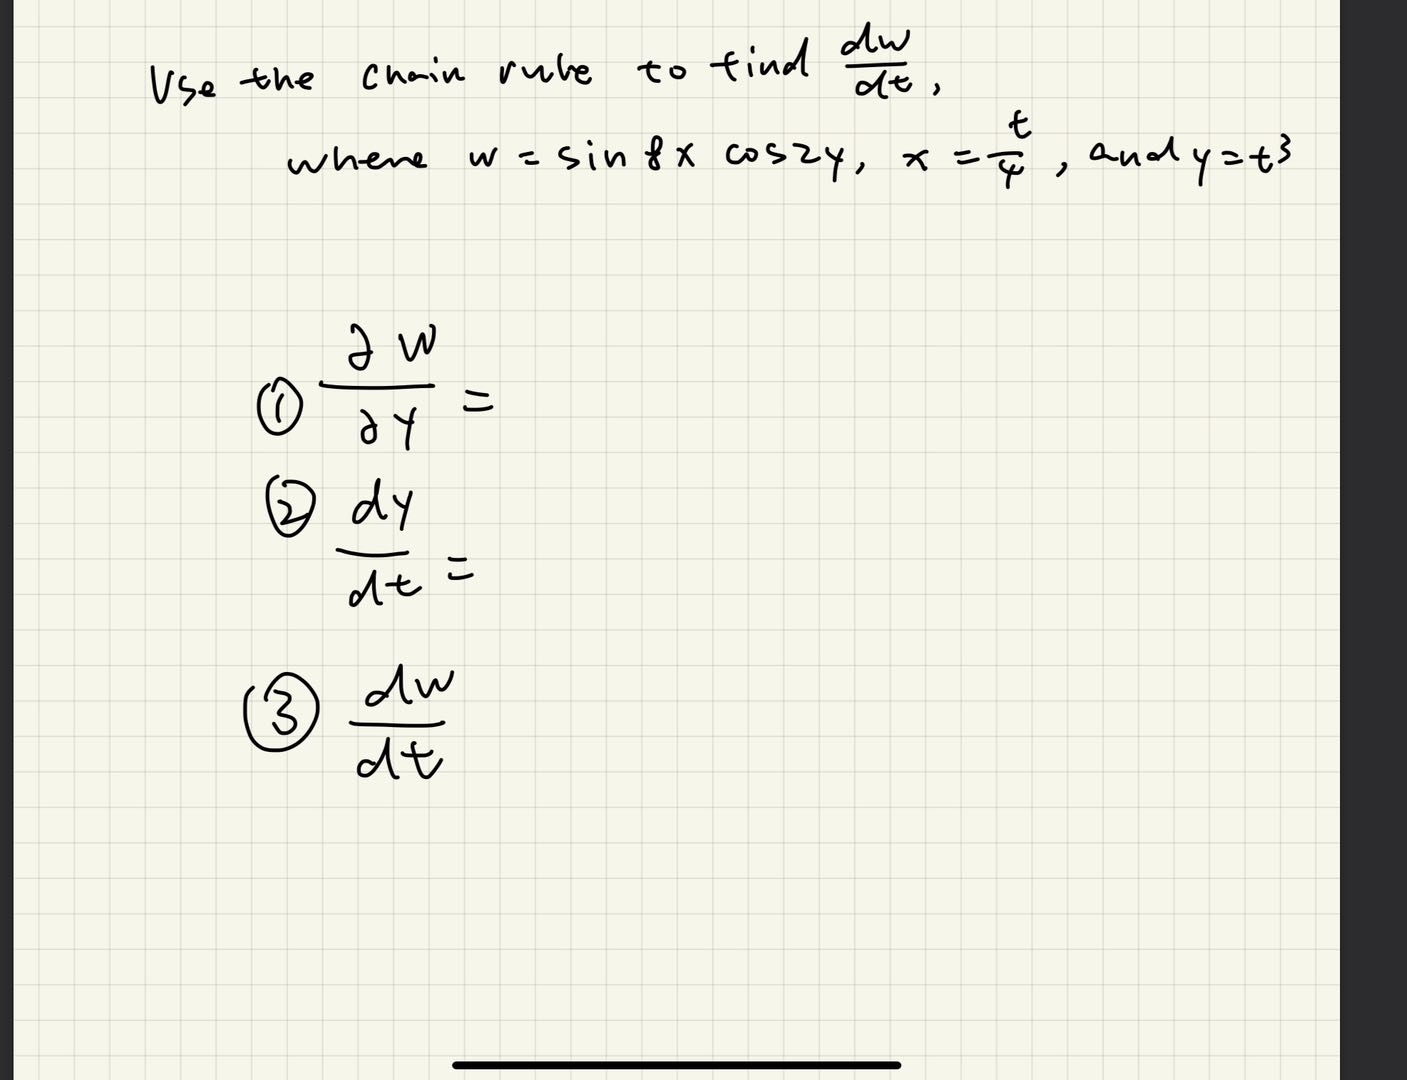 Use the chain rule to find dw/dt,
where w = sin 8x cos2y, x = t/4, and y = t³
① ∂w/∂y =
② dy/dt =
③ dw/dt